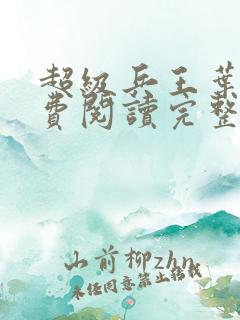 超級兵王葉
費閱讀完整
山前柳zhn
未经同意禁止转载